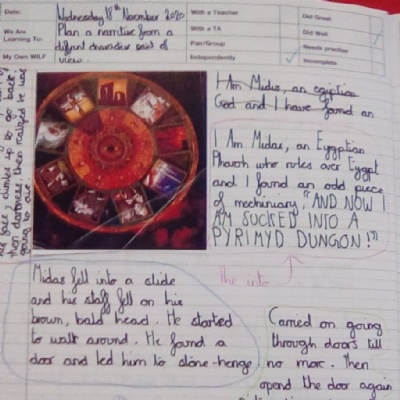 Date:
Wednesday 18th November 2020
We Are Learning To:
Plan a narrative from a
different characters point of
view.
My Own WILF
With a Teacher
With a TA
Pair/Group
Independently
Got Great
Got Well
Needs practise
Incomplete
I Am Midas, an egyptian
God and I have found an
I Am Midas, an Eyyptian
Pharoh who rules over Eygpt
and I found an odd piece
of mechinary. "AND NOW I
AM SUCKED INTO A
PYRIMYD DUNGON!"
the into
his face climbed up to go back
then darkness then realized he was
going to die
Midas fell into a slide
and his staff fell on his
brown, bald head. He started
to walk around. He found a
door and led him to stone-henge
Carried on going
through doors till
no more. Then
opend the door again